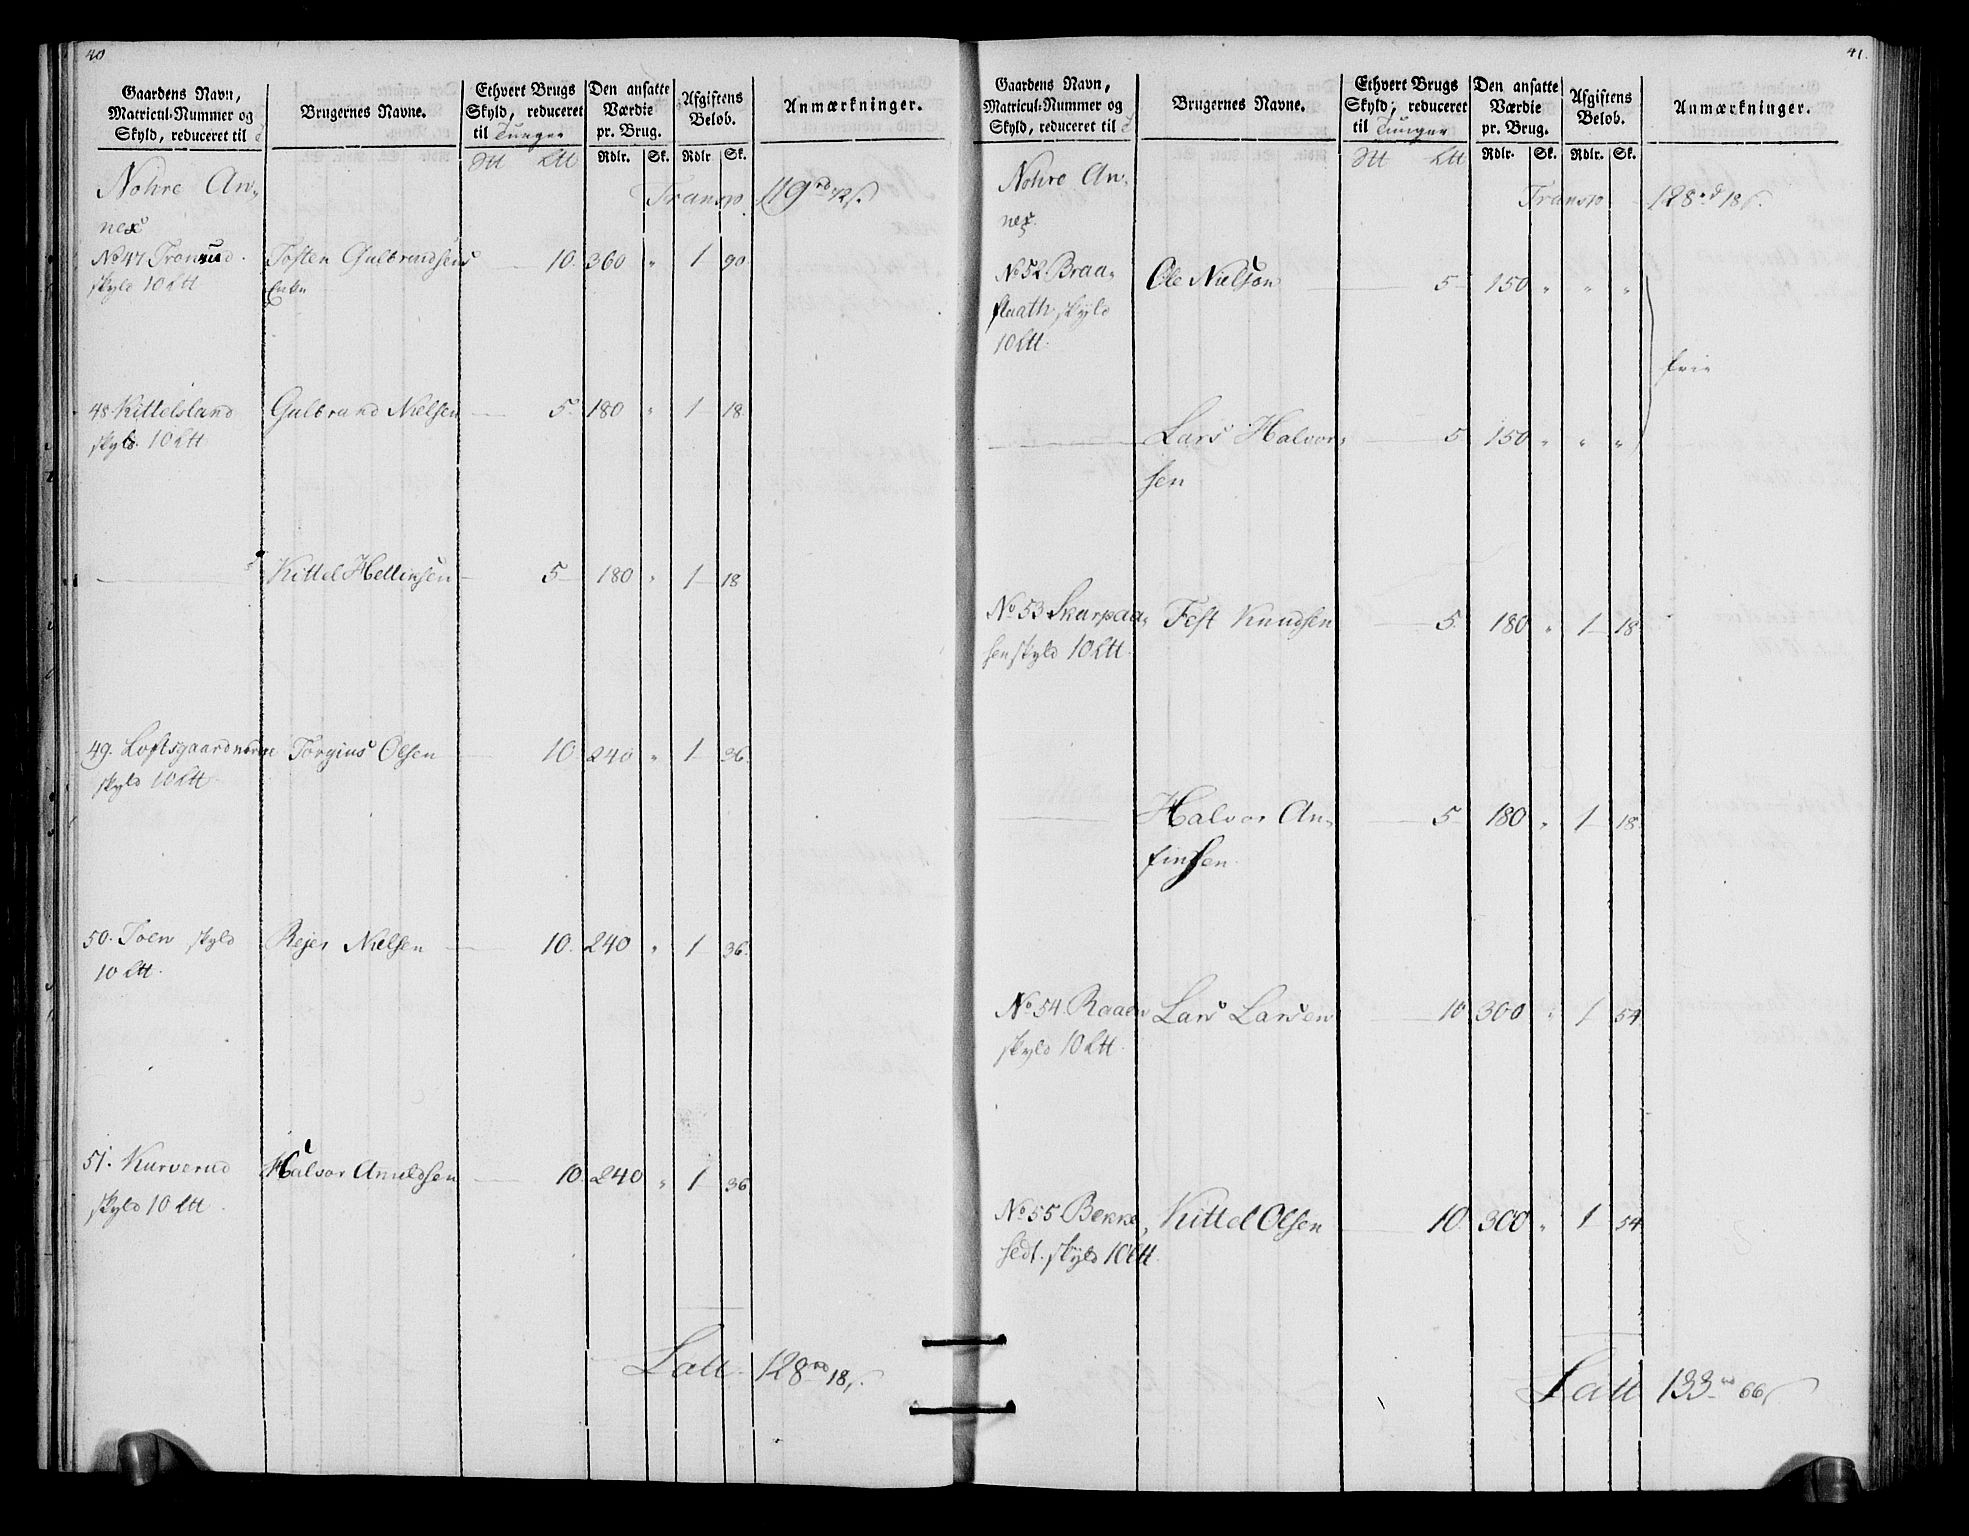 40
Gaardens Navn, Matricul-Nummer og Skyld, reduceret til
Brugernes Navne.
Ethvert Brugs Skyld, reduceret til Tunger
Den ansatte Værdie pr. Brug.
Afgiftens Beløb.
Anmærkninger.
Rdlr. Sk. Rdlr Sk.
Nohre An-
nex
Transp. 119 rd 72 s.
No 47 Tronrud. Tosten Gulbrandsens 10. 360 " 1 90
skyld 10 Ltt Enke
48 Kittelsland Gulbrand Nielsen 5. 180 " 1 18
skyld. 10 Ltt
Kittel Hellinsen 5 180 " 1 18
49. Loftsgaard nørre Torgius Olsen 10. 240 " 1 36
skyld 10 Ltt
50. Toen skyld Rejer Nielsen 10. 240 " 1 36.
10 Ltt.
51. Kurverud Halvor Amundsen 10. 240 " 1 36
skyld 10 Ltt
Latt. 128 rd 18 s.
41.
Gaardens Navn, Matricul-Nummer og Skyld, reduceret til
Brugernes Navne.
Ethvert Brugs Skyld; reduceret til Tunger
Den ansatte Værdie pr. Brug.
Afgiftens Beløb.
Anmærkninger.
Rdlr. Sk. Rdlr. Sk.
Nohre An-
nex.
Transp 128 rd 18 s.
No 52. Braa- Ole Nielsen 5 150 " " "
flaath, skyld
10 Ltt.
frie
Lars Halvor- 5 150 " " "
sen
No 53 Skarpaa- Fest Knudsen 5. 180 " 1 18
sen skyld 10 Ltt.
Halvor An- 5 180 " 1 18
finsen.
No 54. Raaen Lars Larsen 10 300 " 1 54
skyld 10 Ltt.
No 55 Bekke- Kittel Olsen 10. 300 " 1 54
sedt. skyld 10 Ltt
Latt 133 rd 66 s